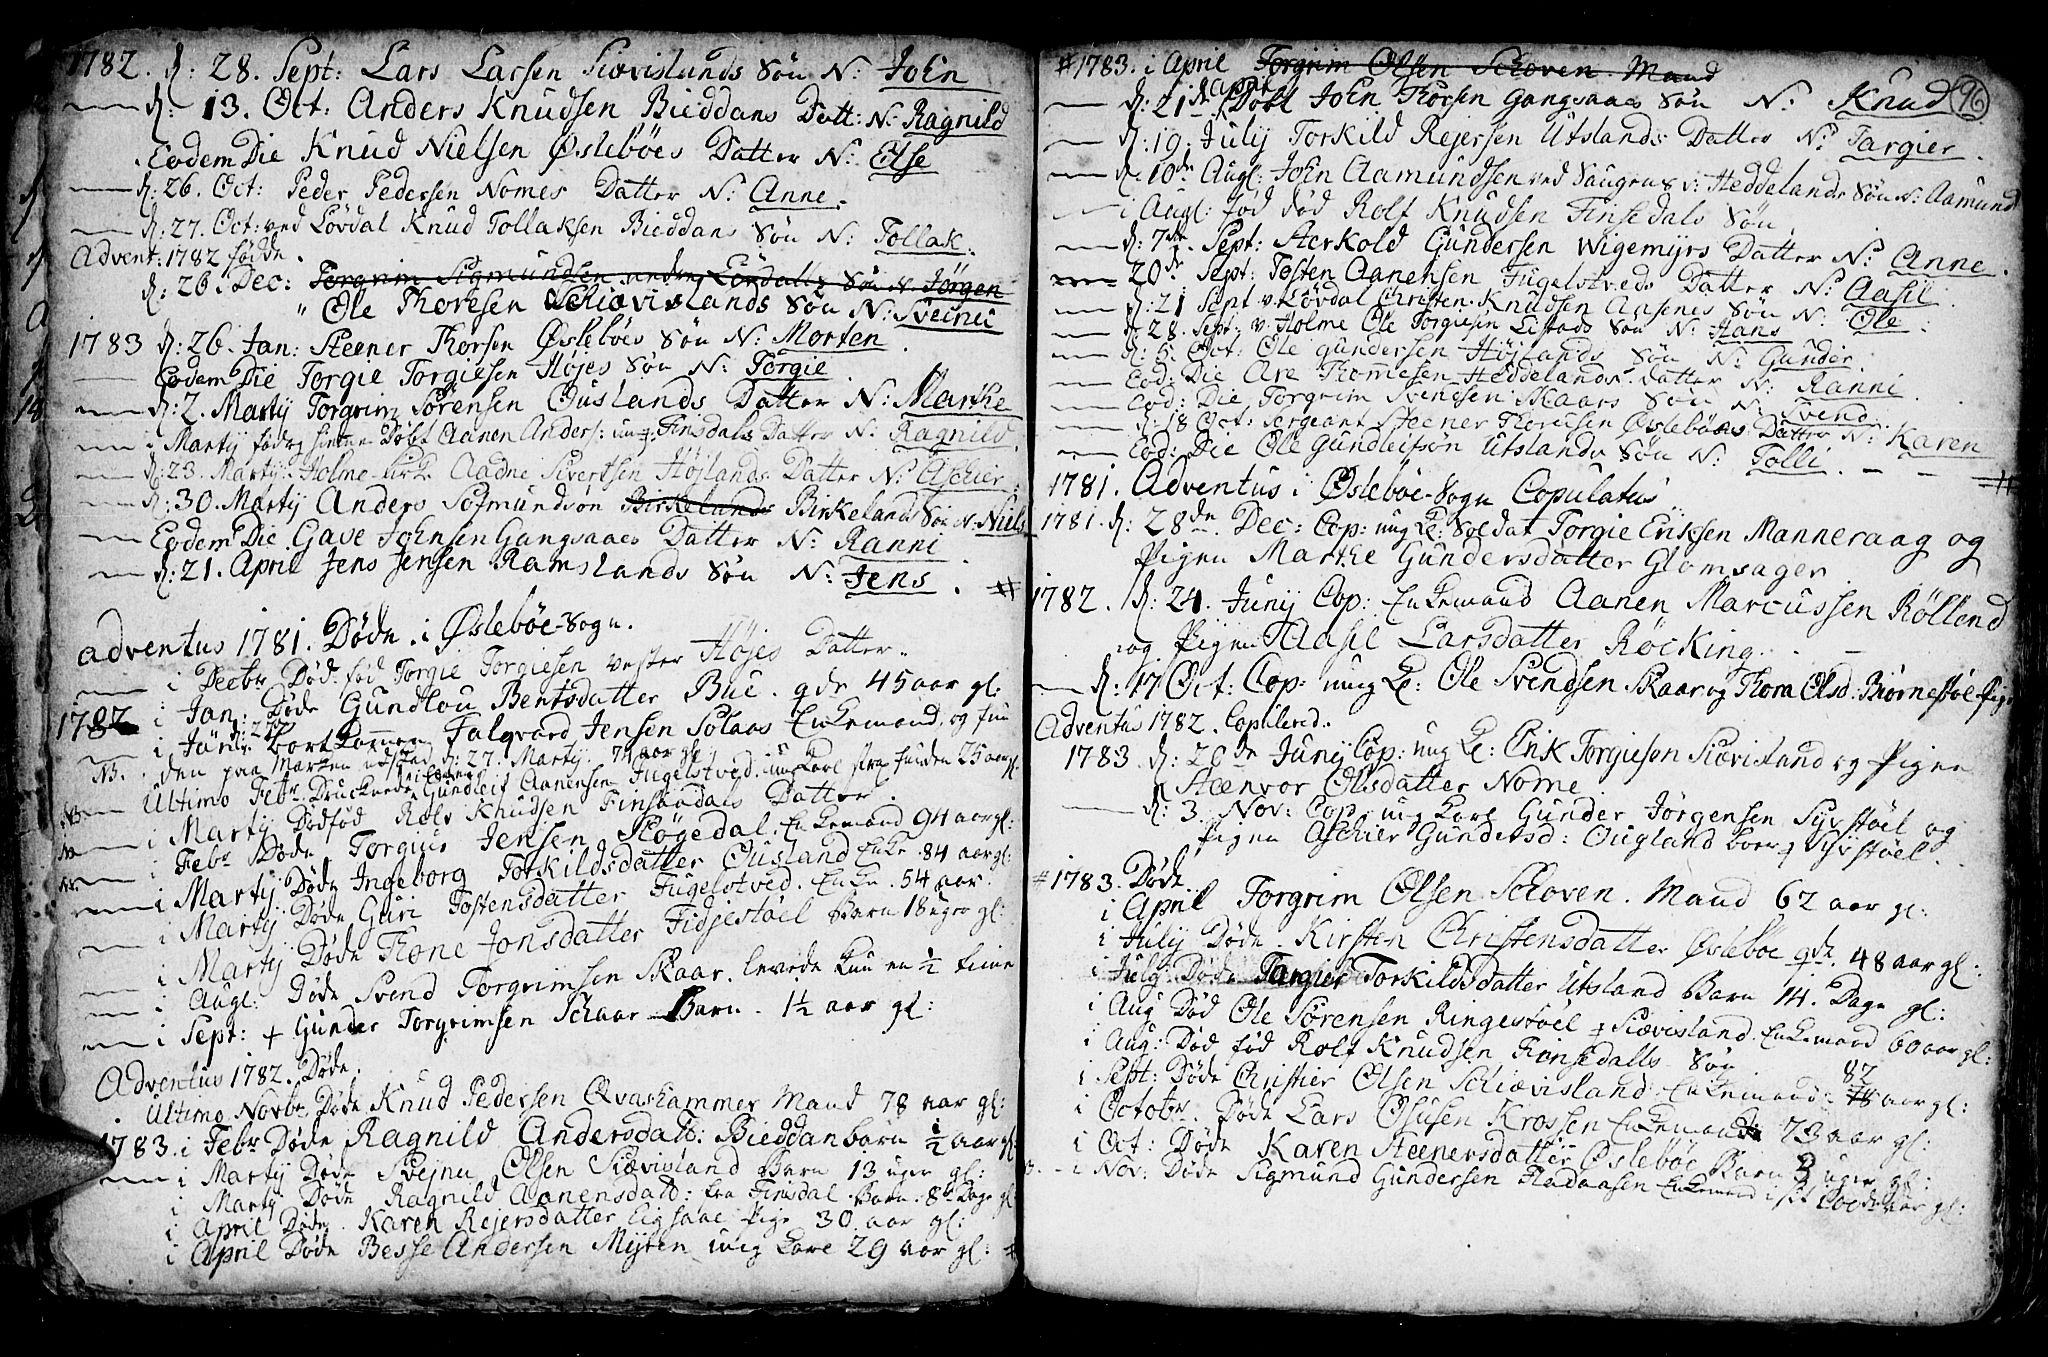 1782. d: 28. Sept: Lars Larsen Siævislands Søn N: John
d: 13. Oct: Anders Knudsen Bieddans Datt: N: Ragnild
Eodem Die Knud Nielsen Øslebøes Datter N: Else
d: 26. Oct: Peder Pedersen Nomes Datter N: Anne.
d: 27. Oct: ved Løvdal Knud Tollaksen Bieddans Søn N: Tollak.
Advent: 1782 fødde.
d: 26. Dec: Torgrim Sigmundsen Søn N: Jørgen
" Ole Thoresen Schiævislands Søn N: Sveinu
1783 d: 26. Jan: Steener Thorsen Øslebøes Søn N: Morten
Eodem Die Torgie Torgiesen Højes Søn N: Torgie
d: 2. Martij Torgrim Sørensen Øuslands Datter N: Marthe
i Martij Døbt Aanen Anders: Finsdals Datter N: Ragnild
d: 23. Martij Holme kirke Aadne Sivertsen Højlands Datter N: Aschier
d: 30. Martij Anders Sigmundsøn Birkelands Birkelands Søn N: Niels
Eodem Die Gave Johnsen Gangsaaes Datter N: Ranni
d: 21. April Jens Jensen Ramslands Søn N: Jens. #
Adventus 1781. Døde i Øslebøe-Sogn.
i Decbr Død fød Torgie Torgiesen vester Højes Datter.
1782 i Jan: Døde Gundlou Bentsdatter Bue. gde 45 aar gl:
i Janr: bortkommen Falqvard Jensen Solaas Enkemand, og fun
NB. den paa Marken d: 27. Martij. 74 aar gl.
NB Ultimo Febr Druknede Gundleif Aanensen Fugelstved. ung Karl 25 aar gl:
i Martij Dødfød Rolv Knudsen Finsdadals Datter.
i Febr Døde Torgius Jensen Skøgedal. Enkemand 94 aar gl:
i Martij Døde Ingeborg Torkildsdatter Øusland Enke 84 aar gl:
i Martij Døde Guri Tostensdatter Fugelstved. Enke. 54 aar.
i Martij Døde Thone Jonsdatter Fidjestøel Barn 18 uger gl:
i Augl: Døde Svend Torgrimsen Skaar. levede kun en ½ time
i Sept: + Gunder Torgrimsen Schaar Barn. 1½ aar gl:
Adventus 1782. Døde.
Ultimo Novbr Døde Knud Pedersen Qvashammer Mand 78 aar gl:
1783. i Febr Døde Ragnild Andersdatt: Bieddan barn ½ aar gl
i Martij Døde Svejnu Olsen Siævisland Barn 13 uger gl:
i Martij Døde Ragnild Aanensdatt: fra Finsdal Barn. 8te Dage gl
i April Døde Karen Rejersdatter Eigsaae Pige 30 aar gl:
i April Døde Besse Andersen Mijren ung Karl 29 aar gl: #
96
#1783. i April Torgrim Olsen Schoven. Mand
d: 21de April Døbt John Thorsen Gangsaaes Søn N: Knud
d: 19. Julij Torkild Rejersen Utslands Datter N: Targier.
d: 10de Augl: John Aamundsen ved Saugen v: Heddelands Søn N: Aamund
i Augl: fød død Rolf Knudsen Finsedals Søn
d: 7de Sept: Aerkold Gundersen Wigemijrs Datter N: Anne.
20de Sept: Tosten Aanensen Fugelstveds Datter N: Aasil
d: 21 Sept v. Løvdal Christen Knudsen Aasenes Søn N: Ole
d: 28. Sept: v. Holme Ole Torgiesen Listads Søn N: Hans
d: 5. Oct: Ole Gundersen Højlands Søn N: Gunder
Eod: Die Are Thomesen Heddelands Datter N: Ranni
Eod: Die Torgrim Svendsen Skaars Søn N: Svend
d: 18 Oct: Sergeant Steener Thoresen Øslebøes Datter N: Karen
Eod: Die Ole Gundleifsøn Utslands Søn N: Tolli. #
1781. Adventus i Øslebøe-Sogn Copulatus
1781. d: 28de Dec: Cop: ung K: Soldat Torgie Eriksen Manneraag og
Pigen Marthe Gundersdatter Glomsager
1782. d: 24. Junij Cop: Enkemand Aanen Marcussen Rølland
og Pigen Aasil Larsdatter Røcking.
d: 17 Oct: Cop: ung K: Ole Svendsen Skaar og Thora Olsd: Biørnestøl Pige
Adventus 1782. Copulered.
1783. d: 20de Junij Cop: ung K: Erik Torgiesøn Siævisland og Pigen
Steenvor Olsdatter Nome
d: 3. Nov: Cop: ung Karl Gunder Jørgensen Syvstøel og
Pigen Aschier Gundersd: Øugland boer Syvstøel.
#1783. Døde.
i April Torgrim Olsen Schoven. Mand 62 aar gl:
i Julij Døde Kirsten Christensdatter Øslebøe gde. 48 aar gl:
i Julij Døde Targier Torkildsdatter Utsland Barn 14. Dage gl:
i Aug Død Ole Sørensen Ringestøel Siævisland Enkemand 60 aar gl:
i Aug: Død fød Rolf Knudsen Finsedalls Søn
i Sept: Døde Christier Olsen Schiævisland Enkemand. 87 aar gl:
i Octobr. Døde Lars Osusen Krossen Enkemand 73 aar gl:
i Oct: Døde Karen Steenersdatter Øslebøe Barn 3 uger gl:
i Nov: Døde Sigmund Gundersen Fladaasen Enkemand i sit 100de aar gl: